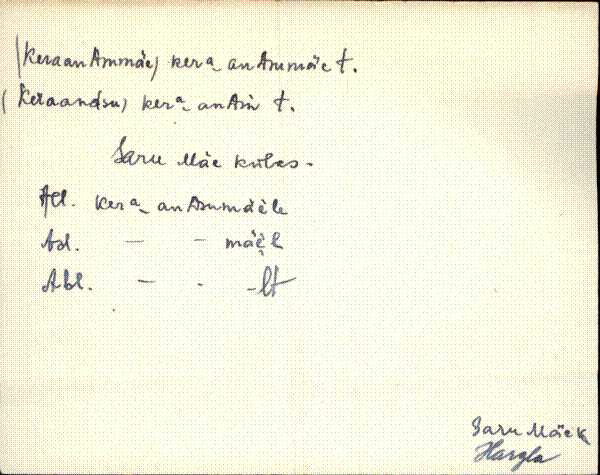 (Keraan Ammäe) kera_anAmmäe t.
(Keraandsu) kera_an t.
Saru Mäe külas.
All. kera_an mäèle
Ad. — - mäèl
Abl. — - -lt
Saru Mäek
Hargla